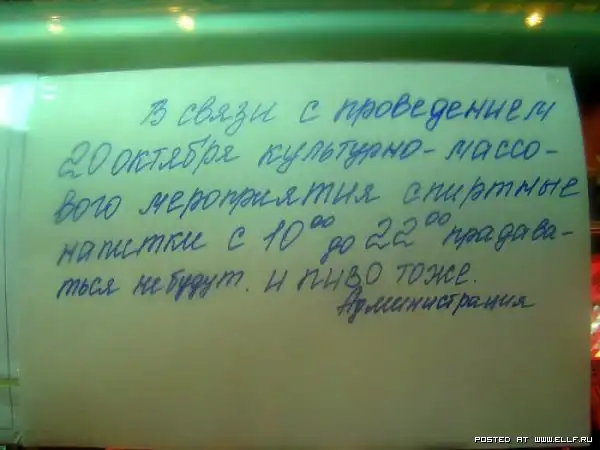 В связи с проведением
20 октября культурно-массо-
вого мероприятия спиртные
напитки с 10⁰⁰ до 22⁰⁰ прадава-
ться не будут. и пиво тоже.
Администрация
POSTED AT WWW.ELLF.RU